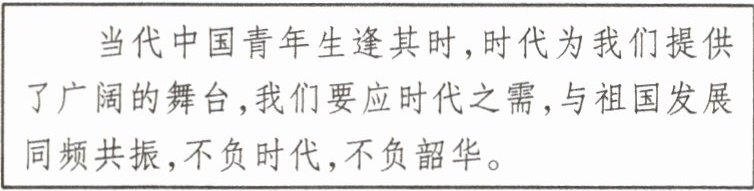 当代中国青年生逢其时,时代为我们提供
了广阔的舞台,我们要应时代之需,与祖国发展
同频共振,不负时代,不负韶华。